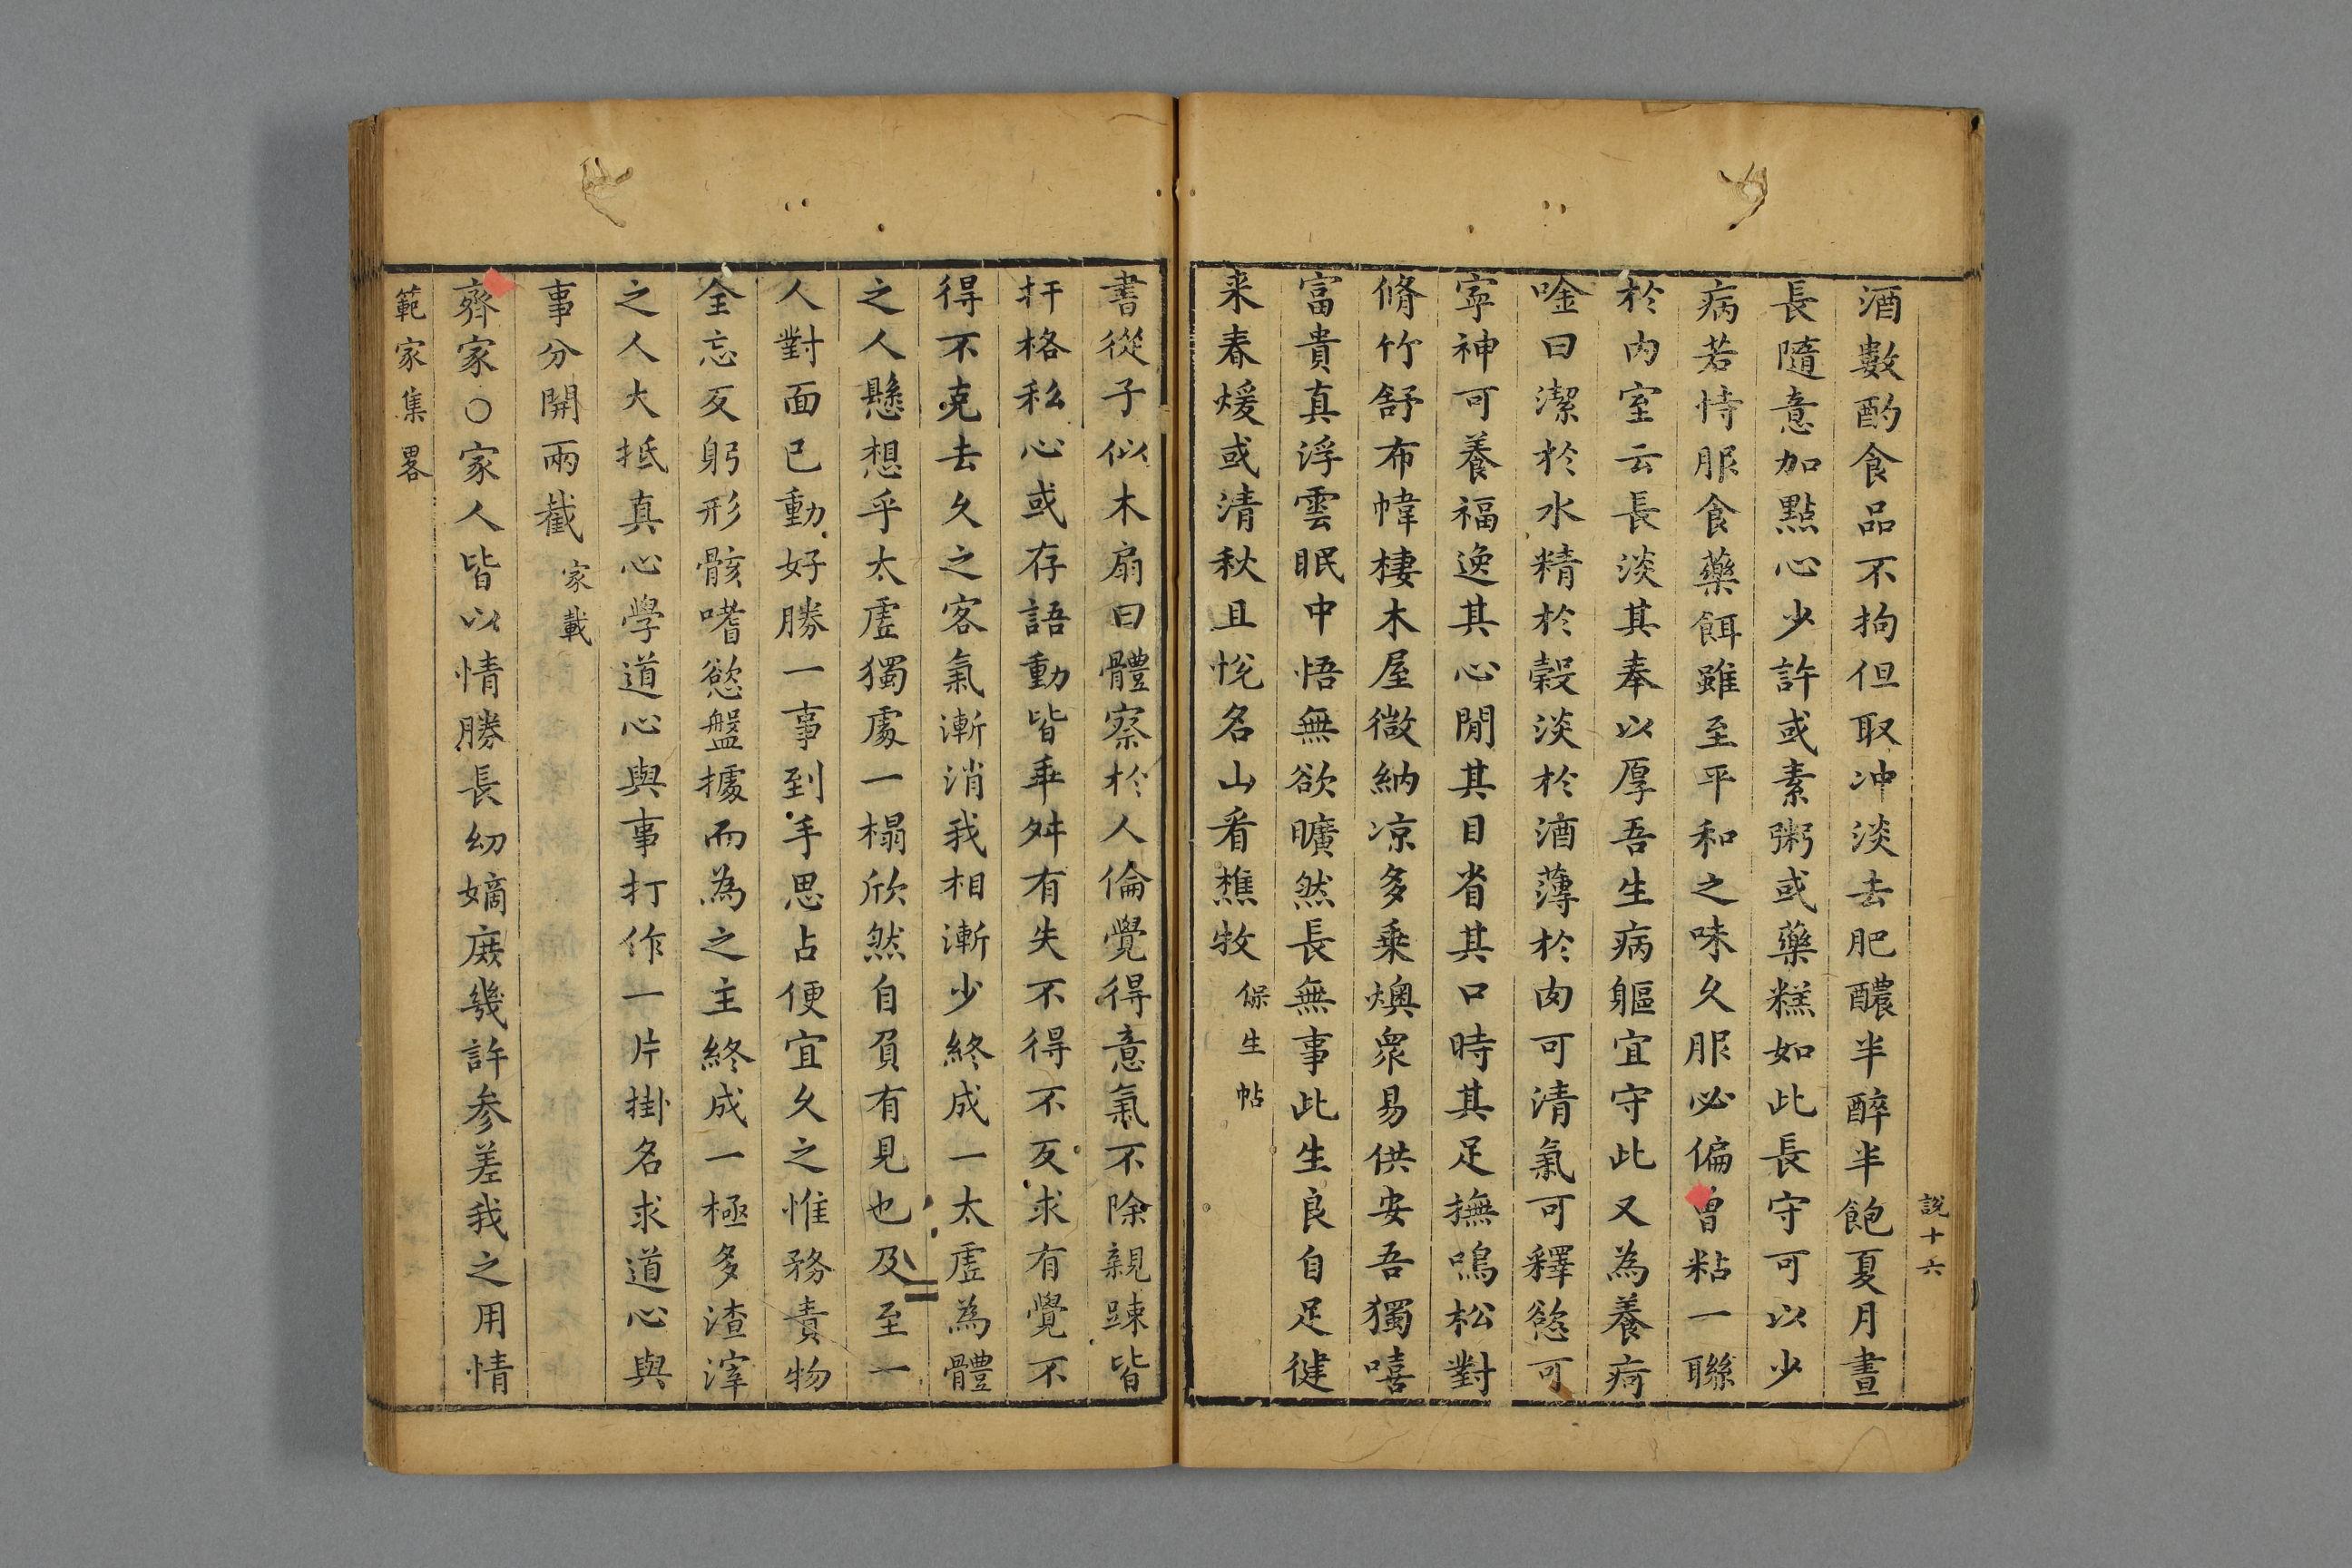 酒數酌食品不拘但取冲淡去肥醲半醉半飽夏月晝
長隨意加點心少許或素粥或藥糕如此長守可以少
病若恃服食藥餌雖至平和之味久服必偏曾粘一聯
於内室云長淡其奉以厚吾生病軀宜守此又為養疴
唫曰潔於水精於穀淡於酒薄於肉可清氣可釋慾可
寧神可養福逸其心閒其目省其口時其足撫鳴松對
脩竹舒布幃棲木屋微納凉多乗燠衆易供安吾獨嘻
富貴真浮雲眠中悟無欲曠然長無事此生良自足徤
来春煖或清秋且恱名山看樵牧 保生帖
說十六
書從子似木扇曰體察於人倫覺得意氣不除親踈皆
扞格私心或存語動皆乖舛有失不得不反求有覺不
得不克去久之客氣漸消我相漸少終成一太虛為體
之人懸想乎太虛獨處一榻欣然自負有見也及至一
人對面已動好勝一事到手思占便宜久之惟務責物
全忘反躬形骸嗜慾盤據而為之主終成一極多渣滓
之人大抵真心學道心與事打作一片掛名求道心與
事分開兩截 家載
齊家○家人皆以情勝長幼嫡庶幾許參差我之用情
範家集畧